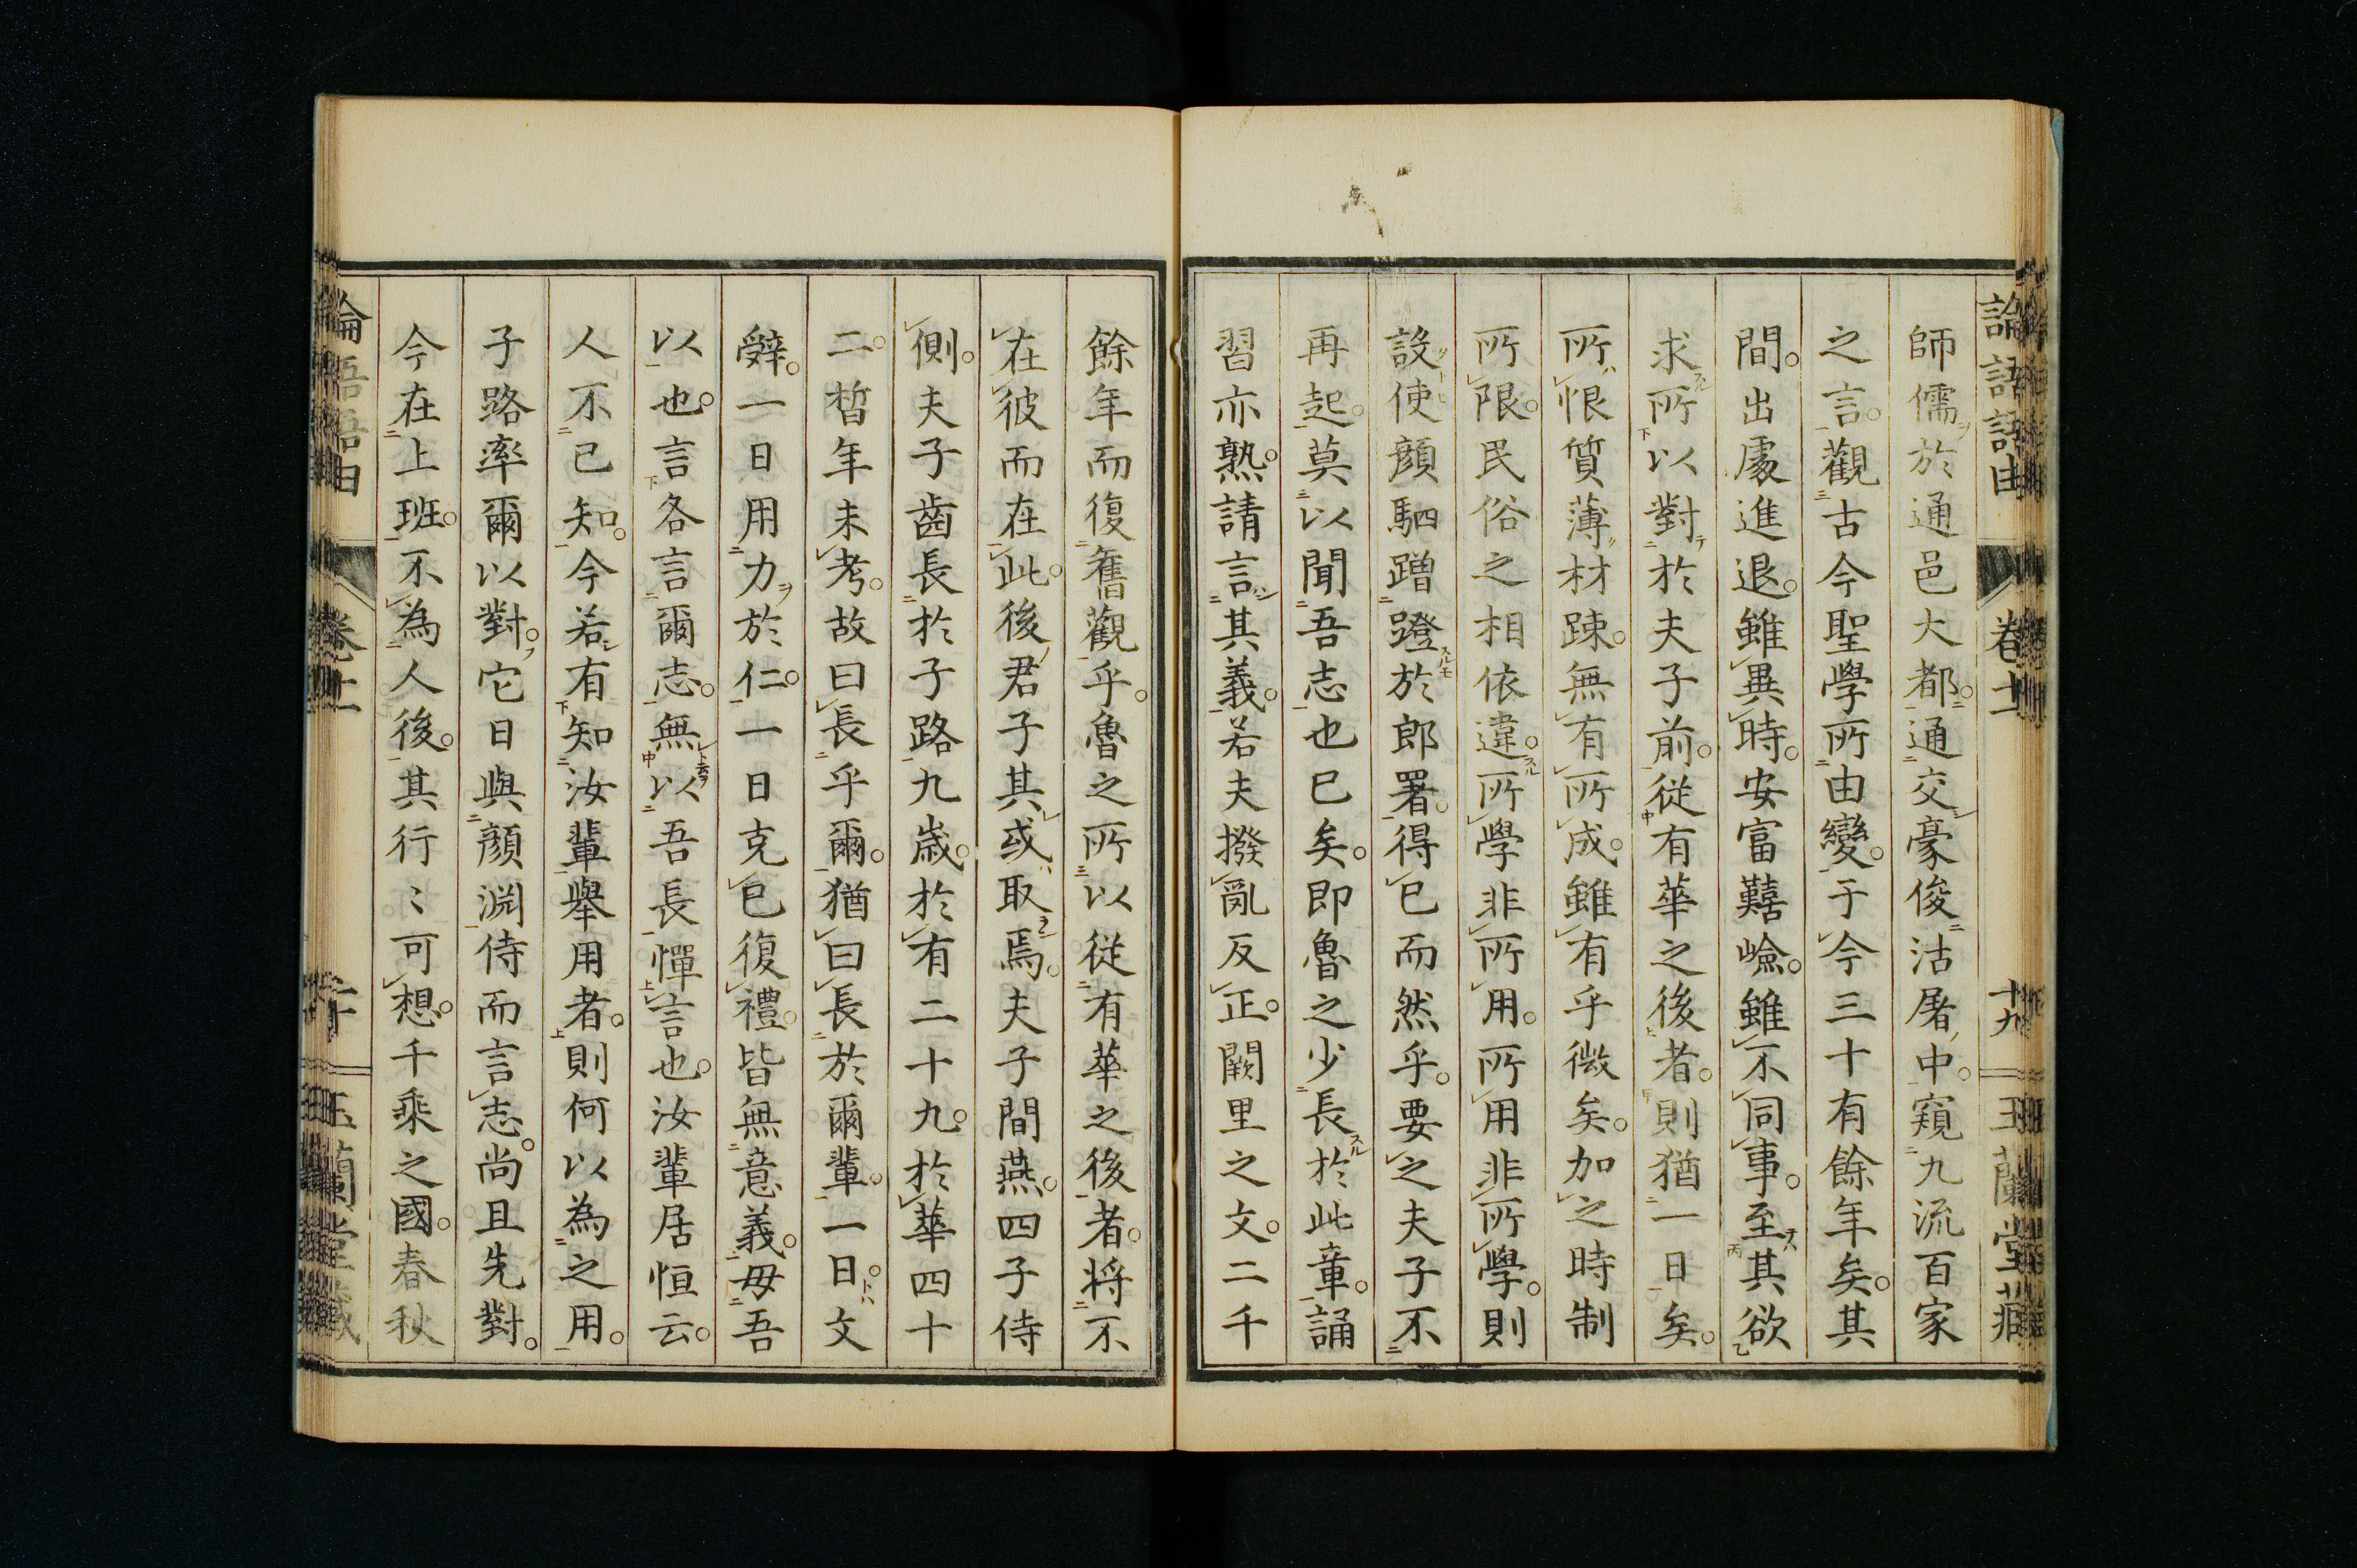 論語語由 卷十一 十九 玉蘭堂藏
師儒於通邑大都。通交豪俊沽屠中。窺九流百家
之言。觀古今聖學所由變。于今三十有餘年矣。其
間。出處進退。雖異時。安富囏嶮。雖不同事。至其欲
求所以對於夫子前。從有華之後者。則猶一日矣。
所恨質薄材疎。無有所成。雖有乎微矣。加之時制
所限。民俗之相依違。所學非所用。所用非所學。則
設使顏駟蹭蹬於郎署。得已而然乎。要之夫子不
再起。莫以聞吾志也已矣。即魯之少長於此章。誦
習亦熟。請言其義。若夫撥亂反正。闕里之文。二千
餘年而復舊觀乎。魯之所以從有華之後者。將不
在彼而在此。後君子其或取焉。夫子間燕。四子侍
側。夫子齒長於子路九歲。於有二十九。於華四十
二。皙年未考。故曰長乎爾。猶曰長於爾輩。一日。文
辭。一日用力於仁。一日克己復禮。皆無意義。毋吾
以也。言各言爾志。無以吾長憚言也。汝輩居恒云。
人不已知。今若有知汝輩舉用者。則何以為之用。
子路率爾以對。它日與顏淵侍而言志。尚且先對。
今在上班。不為人後。其行〻可想。千乘之國。春秋
論語語由 卷十一 二十 玉蘭堂藏